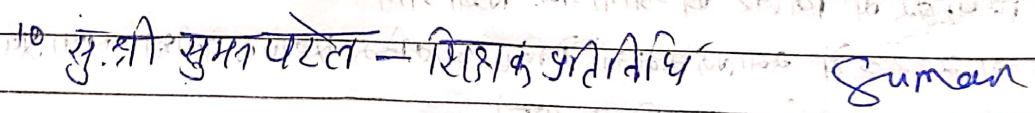 10 सु.श्री सुमन पटेल – शिक्षक प्रतिनिधि Suman